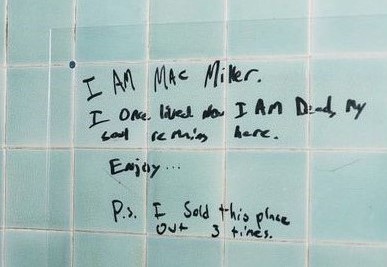 I AM MAC Miller.
I Once lived now I AM Dead, My
soul remains here.
Enjoy...
P.s. I Sold this place
out 3 times.